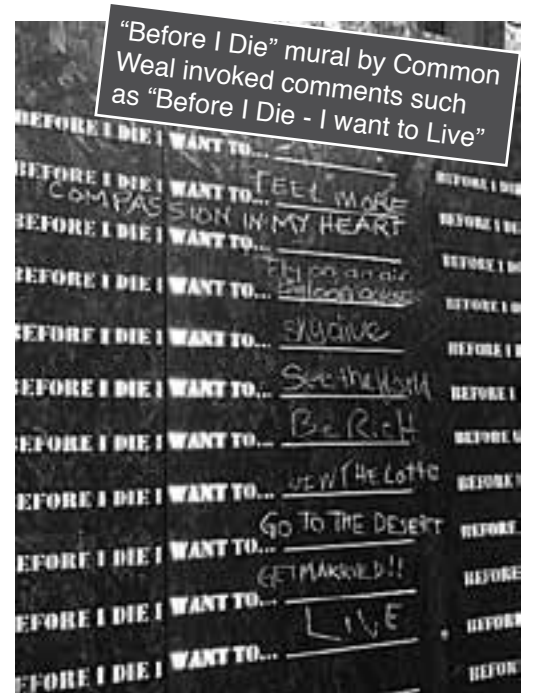 “Before I Die” mural by Common
Weal invoked comments such
as “Before I Die - I want to Live”
BEFORE I DIE I WANT TO...
BEFORE I DIE I WANT TO... FEEL MORE
COMPASSION IN MY HEART
BEFORE I DIE I WANT TO...
BEFORE I DIE I WANT TO... Fly on an air
balloon
BEFORE I DIE I WANT TO... skydive
BEFORE I DIE I WANT TO... See the World
BEFORE I DIE I WANT TO... Be RicH
BEFORE I DIE I WANT TO... WIN THE LoTTo
BEFORE I DIE I WANT TO... GO TO THE DESERT
BEFORE I DIE I WANT TO... GET MARRIED!!
BEFORE I DIE I WANT TO... LIVE
BEFORE I DIE I
BEFORE I DIE
BEFORE I DIE
BEFORE I DIE
BEFORE I D
BEFORE I
BEFORE I
BEFORE
BEFORE
BEFORE
BEFORE
BEFORE
BEFOR